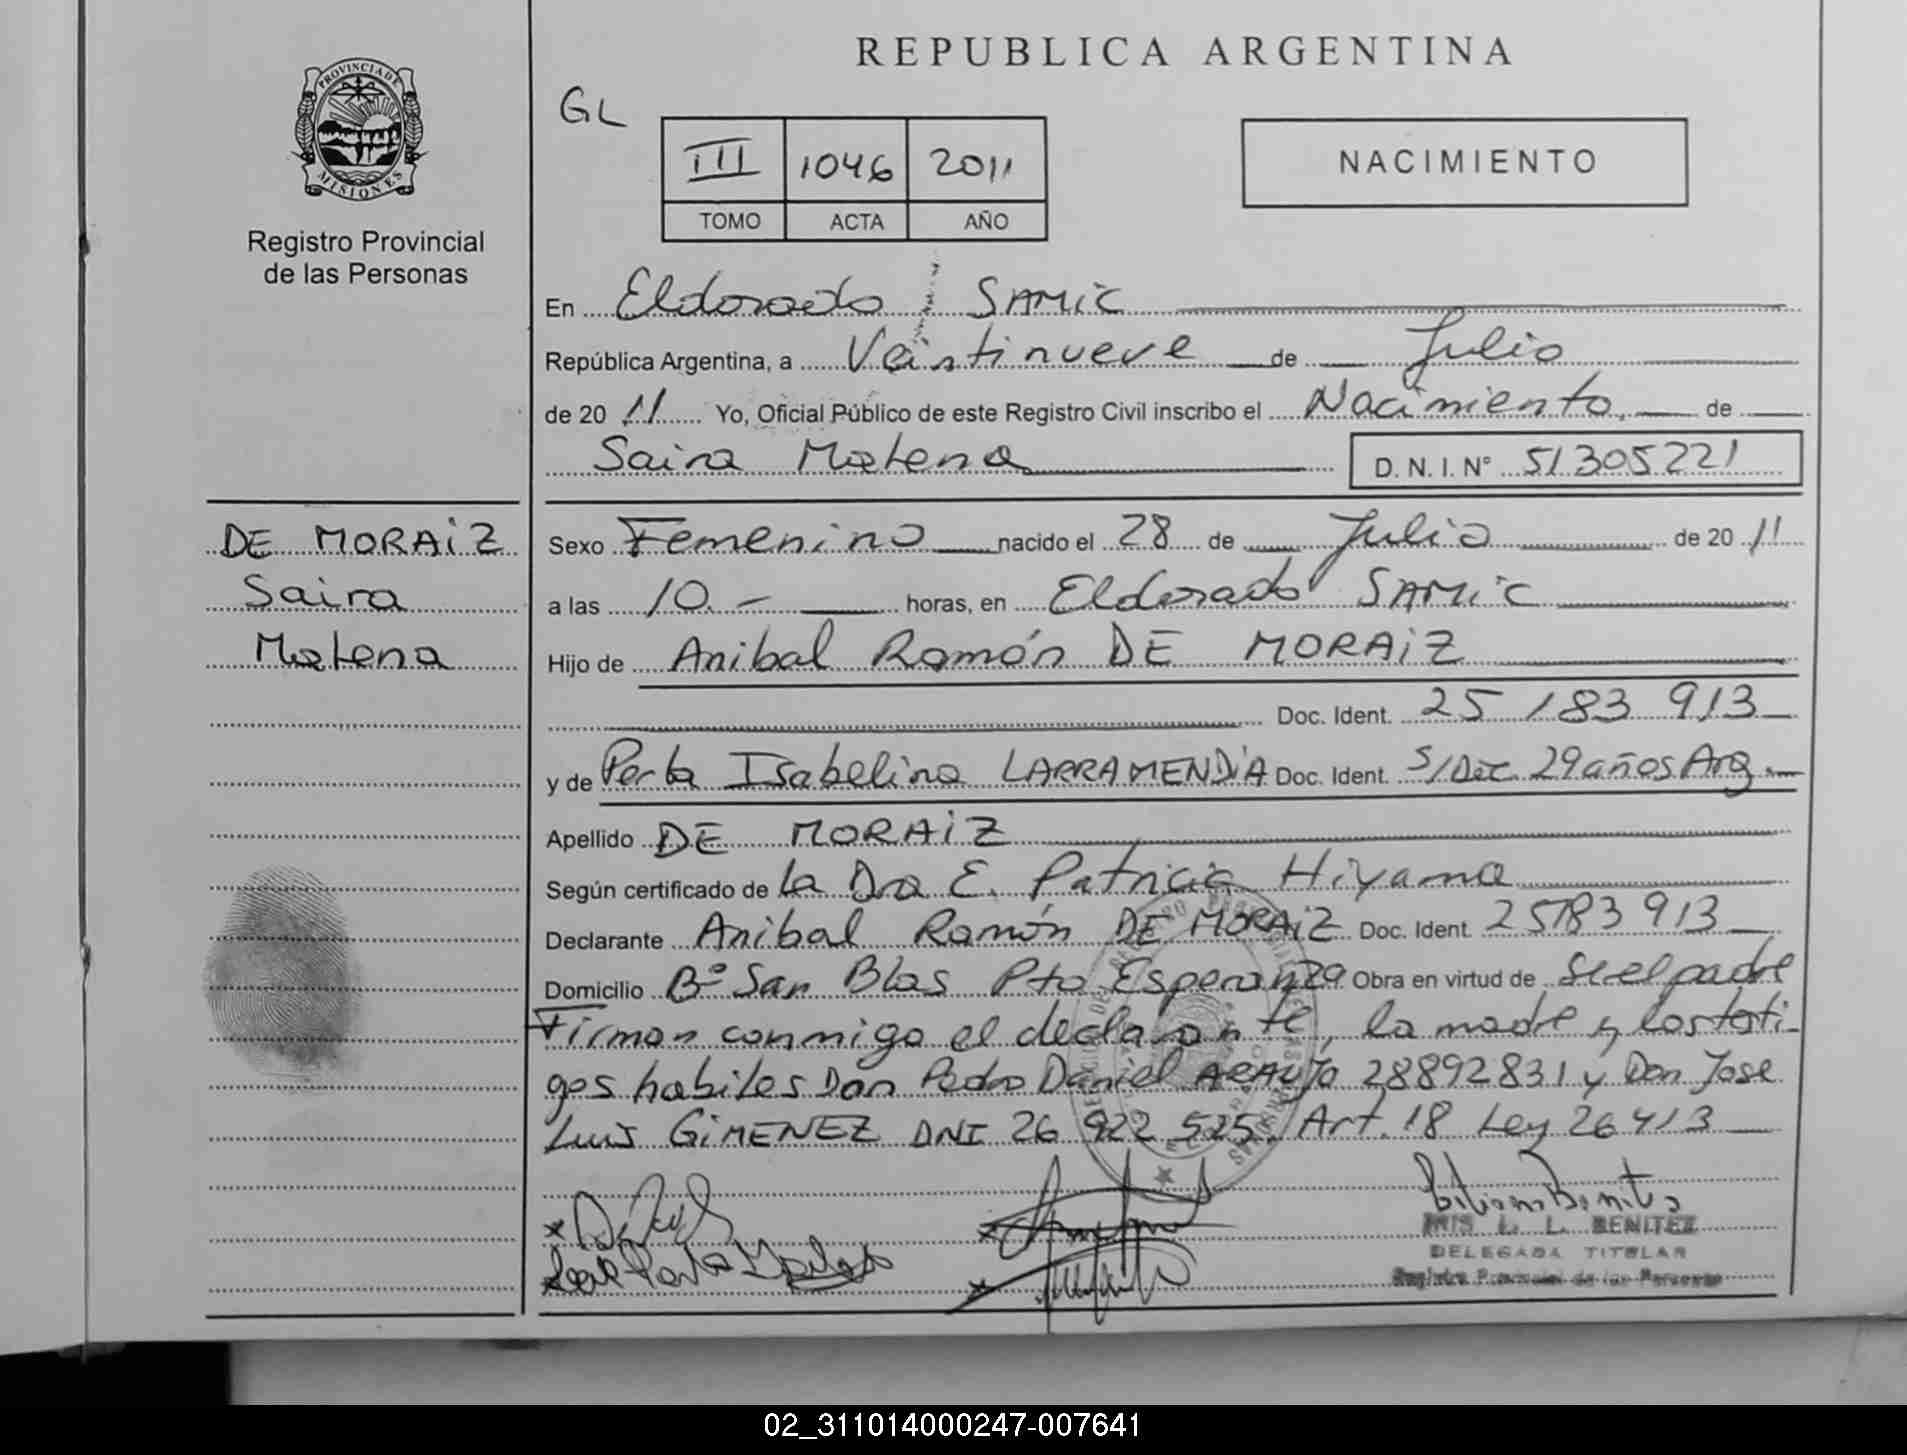 REPUBLICA ARGENTINA
PROVINCIA DE
MISIONES
Registro Provincial
de las Personas
GL
III 1046 2011
TOMO ACTA AÑO
NACIMIENTO
En Eldorado SAMIC
República Argentina, a Veintinueve de Julio
de 2011 Yo, Oficial Público de este Registro Civil inscribo el Nacimiento de
Saira Malena D.N.I. N° 51305221
DE MORAIZ
Saira
Malena
Sexo Femenino nacido el 28 de Julio de 2011
a las 10.- horas, en Eldorado SAMIC
Hijo de Anibal Ramón DE MORAIZ
Doc. Ident. 25 183 913
y de Perla Isabelina LARRAMENDIA Doc. Ident. S/Doc. 29 años Arg.
Apellido DE MORAIZ
Según certificado de la Dra E. Patricia Hiyama
Declarante Anibal Ramón DE MORAIZ Doc. Ident. 25183913
Domicilio Bº San Blas Pto Esperanza Obra en virtud de Ser el padre
Firman conmigo el declarante, la madre y los testi-
gos habiles Don Pedro Daniel ARAUJO 28892831 y Don Jose
Luis GIMENEZ DNI 26 922 525. Art. 18 Ley 26413
IRIS L. L. BENITEZ
DELEGADA TITULAR
Registro Provincial de las Personas
02_311014000247-007641